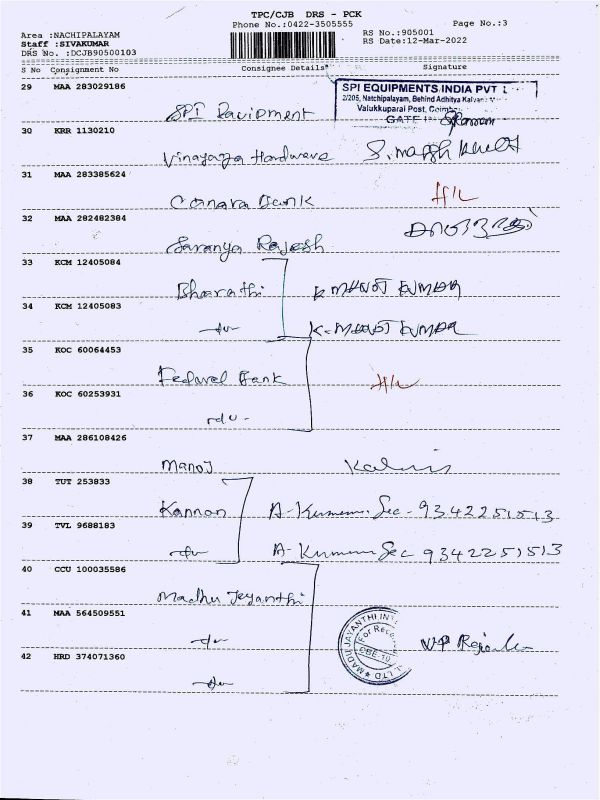 TPC/CJB DRS - PCK
Phone No.:0422-3505555
Page No.:3
Area :NACHIPALAYAM
Staff :SIVAKUMAR
DRS No. :DCJB90500103
RS No.:905001
RS Date:12-Mar-2022
S No Consignment No Consignee Details Signature
29 MAA 283029186
SPI EQUIPMENTS INDIA PVT
2/205, Natchipalayam, Behind Adhitya
Valukkuparai Post,
GATE IN
SPI
30 KRR 1130210
Vinayaga Hardware
31 MAA 283385624
Canara Bank H/L
32 MAA 282482384
Saranya Rajesh
33 KCM 12405084
Bharathi K MANOJ KUMAR
34 KCM 12405083
-do- K-MANOJ KUMAR
35 KOC 60064453
Federal Bank H/L
36 KOC 60253931
-do-
37 MAA 286108426
Manoj
38 TUT 253833
Kannan A- Sec - 9342251513
39 TVL 9688183
-do- A- Sec 9342251513
40 CCU 100035586
Madhu Jeyanthi
41 MAA 564509551
-do-
MADHU JAYANTHI INT LTD
For
CBE-10
42 HRD 374071360
-do-